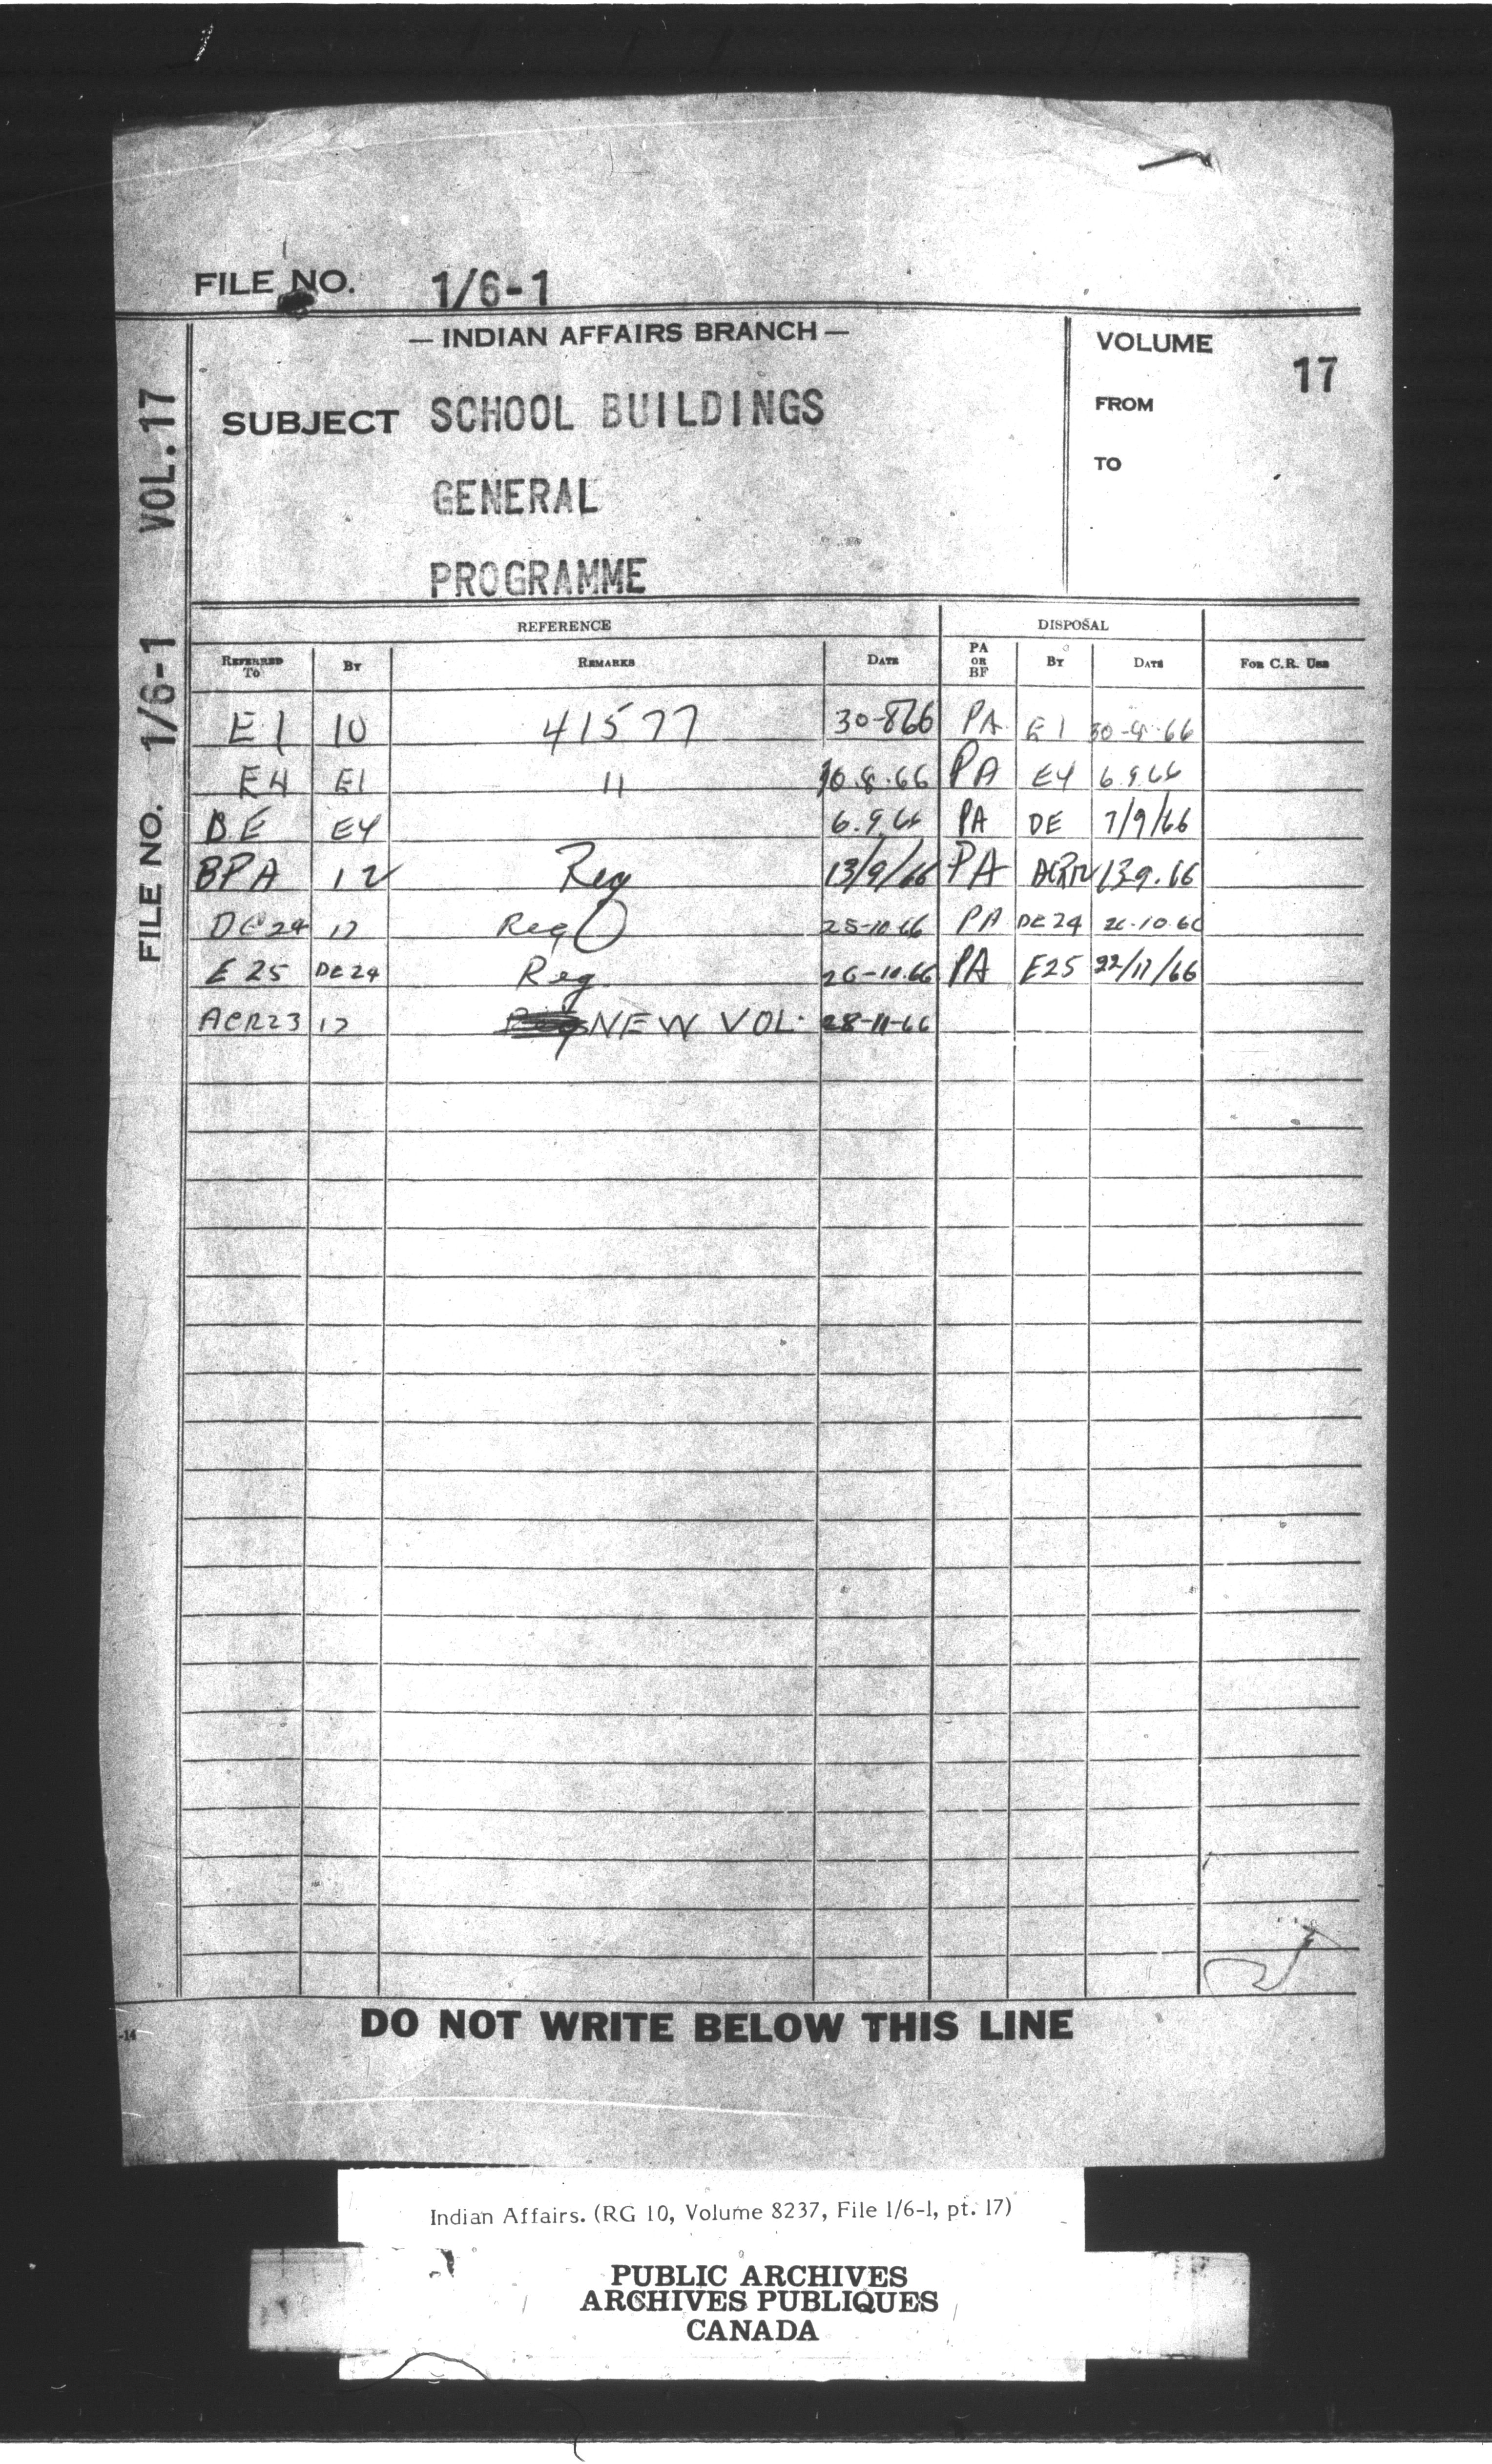 FILE NO. 1/6-1
— INDIAN AFFAIRS BRANCH —
SUBJECT SCHOOL BUILDINGS
GENERAL
PROGRAMME
VOLUME 17
FROM
TO
FILE NO. 1/6-1 VOL. 17
REFERENCE DISPOSAL
REFERRED TO BY REMARKS DATE PA OR BF BY DATE FOR C.R. USE
E1 10 41577 30-866 PA E1 30-8-66
E4 E1 11 10.8.66 PA E4 6.9.66
DE E4 6.9.66 PA DE 7/9/66
BPA 12 Req 13/9/66 PA 13.9.66
DE24 12 Req 25-10-66 PA DE24 26.10.66
E25 DE24 Req 26-10.66 PA E25 22/11/66
ACR23 12 NEW VOL. 28-11-66
DO NOT WRITE BELOW THIS LINE
-14
Indian Affairs. (RG 10, Volume 8237, File 1/6-1, pt. 17)
PUBLIC ARCHIVES
ARCHIVES PUBLIQUES
CANADA